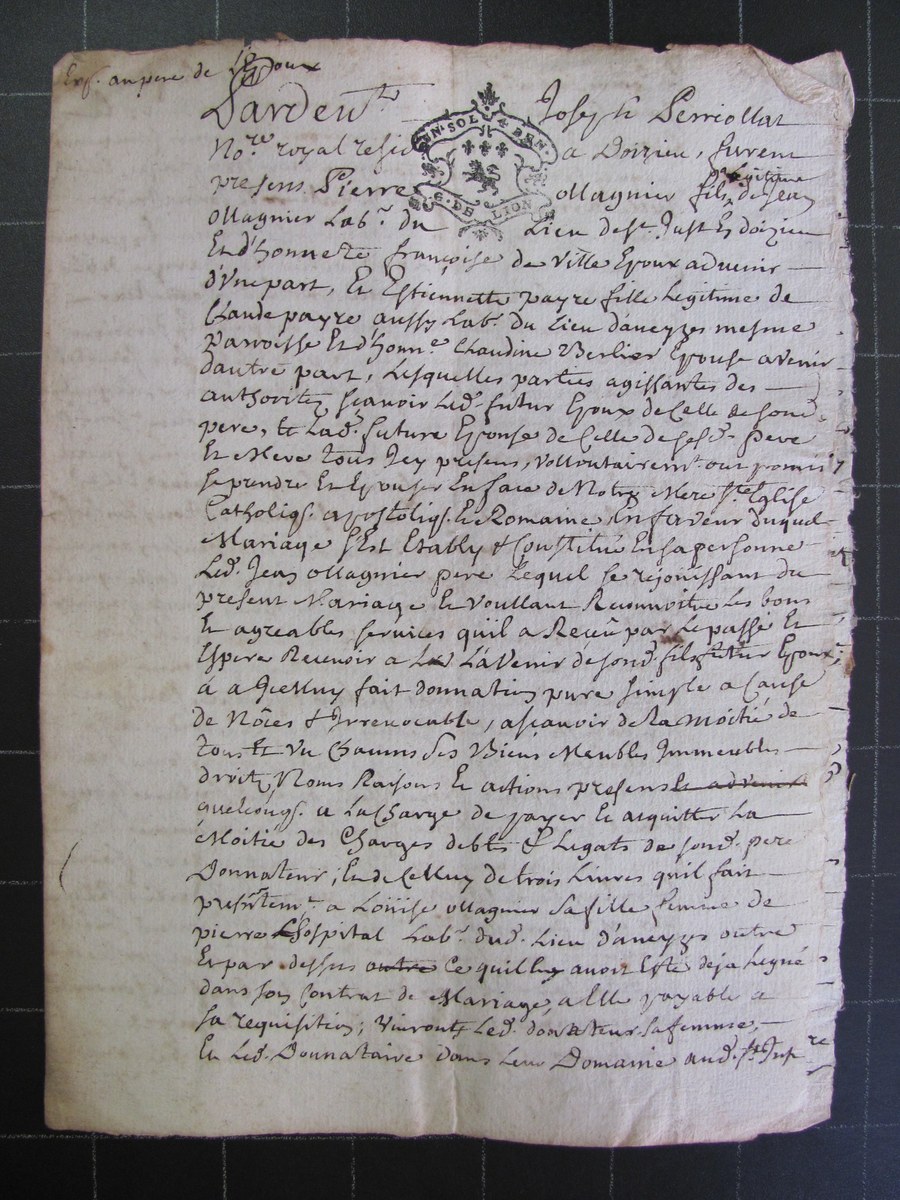 Exp. au pere de l'Epoux
Pardevt. Joseph Perriollat
Nore. royal resid a Doizieu, furent
UN. SOL 4 DEN.
G. DE LION
presens Pierre Ollagnier fils legitime de Jean
Ollagnier Labr. du Lieu de St. Just En doizieu
Et d'honnete françoise de Ville Epoux advenir
d'Une part, Et Estiennette payre fille Legitime de
Claude payre aussy Labr. du Lieu d'aveyzes mesme
Parroisse Et d'honne. Claudine Berlier Epouse avenir
dautre part, Lesquelles parties agissantes des
authorites sçavoir Led. futur Epoux de Celle de Sond.
pere, Et Lad. future Epouse de Celle de sesd. pere
Et Mere tous Icy presens, vollontairemt. ont promis
se prendre Et Epouser En face de Notre Mere Ste. Eglise
Catholiq. apostoliq. Et Romaine En faveur duquel
Mariage s'Est Etably & Constitué En sa personne
Led. Jean Ollagnier pere Lequel se rejouissant du
present Mariage Et Voullant Reconnoitre Les bons
Et agreables services qu'il a Receu par Le passé Et
Espere Recevoir a L'avenir de sond. fils futur Epoux
à a Icelluy fait donnation pure simple a Cause
de Nôces & Irrevocable, ascavoir de La moitié de
tous Et Un Chacuns Ses Biens Meubles Immeubles
droits Noms Raisons Et actions presens et advenir
quelconqs. a La Charge de payer Et acquitter La
Moitié des Charges debtes & Legats de sond. pere
Donnateur, Et de Celluy de trois Livres qu'il fait
presentemt. a Loüise Ollagnier Sa fille femme de
pierre L'hospital Labr. dud. Lieu d'aveyzes outre
Et par dessus outre Ce quil luy avoit Esté deja Legué
dans son Contrat de Mariage, a Elle payable a
sa requisition; vivront Led. donateur sa femme,
Et Led. Donnataire dans Leur Domaine aud. St. Just